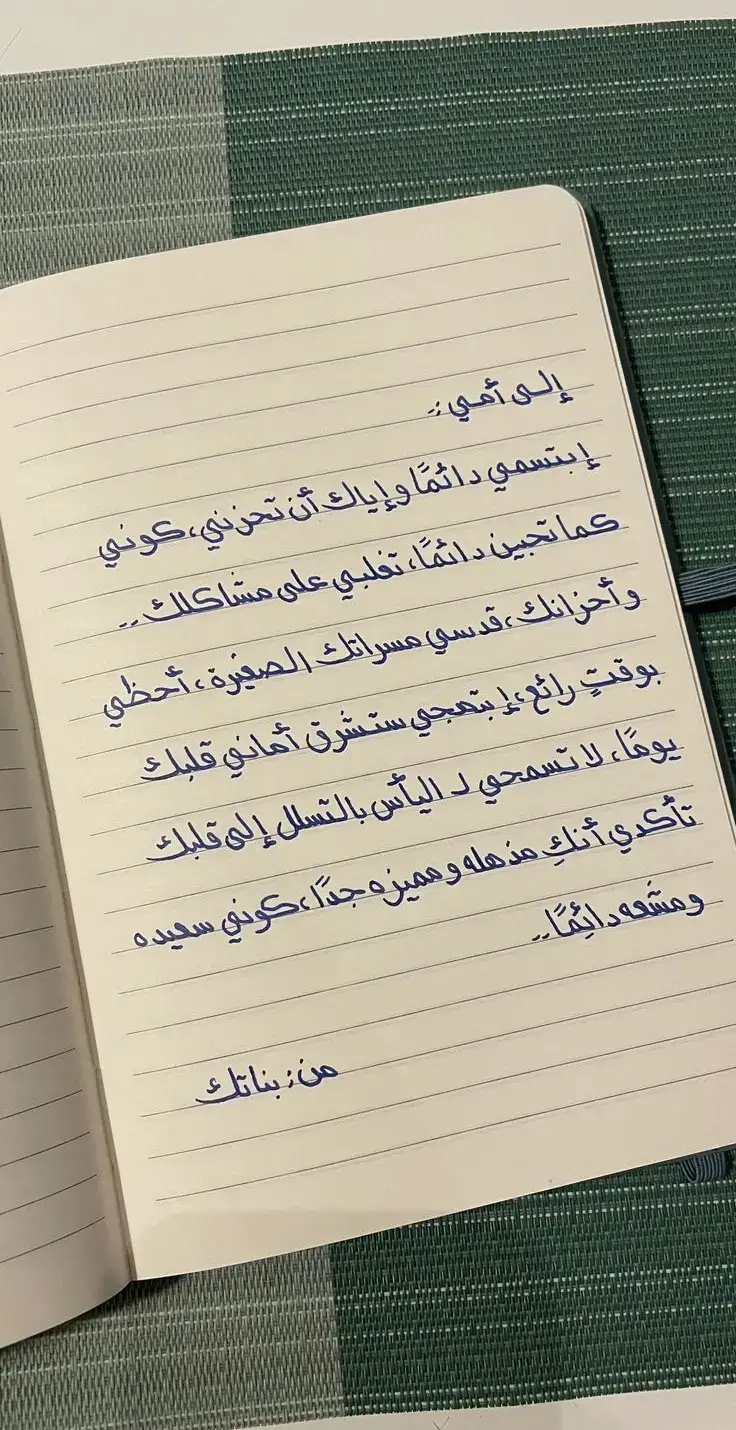 إلى أمي :
إبتسمي دائمًا وإياك أن تحزني، كوني
كما تحبين دائمًا، تغلبي على مشاكلك ..
وأحزانك، قدسي مسراتك الصغيرة، أحظي
بوقتٍ رائع، إبتهجي ستشرق أماني قلبك
يومًا، لا تسمحي لـ اليأس بالتسلل إلى قلبك
تأكدي أنكِ مذهله ومميزه جدًا، كوني سعيده
ومشعه دائمًا ..
من : بناتك